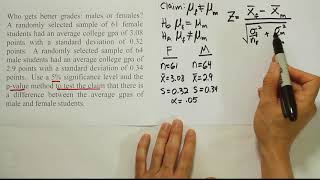 Who gets better grades: males or females?
A randomly selected sample of 61 female
students had an average college gpa of 3.08
points with a standard deviation of 0.32
points. A randomly selected sample of 64
male students had an average college gpa of
2.9 points with a standard deviation of 0.34
points. Use a 5% significance level and the
p-value method to test the claim that there is
a difference between the average gpas of
male and female students.
Claim: μf ≠ μm
H₀ μf = μm
Hₐ μf ≠ μm
F M
n=61 n=64
x̄=3.08 x̄=2.9
s=0.32 s=0.34
α=.05
Z = x̄f − x̄m
√ σf²/nf + σm²